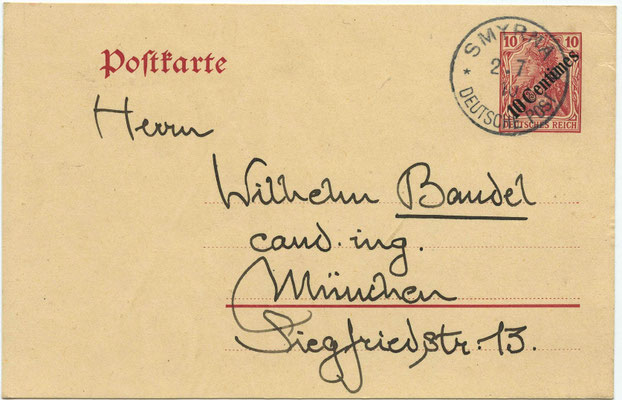 Postkarte
10 10
10 Centimes
DEUTSCHES REICH
SMYRNA
2.7
* DEUTSCHE POST
Herrn
Wilhelm Bandel
cand. ing.
München
Siegfriedstr. 13.